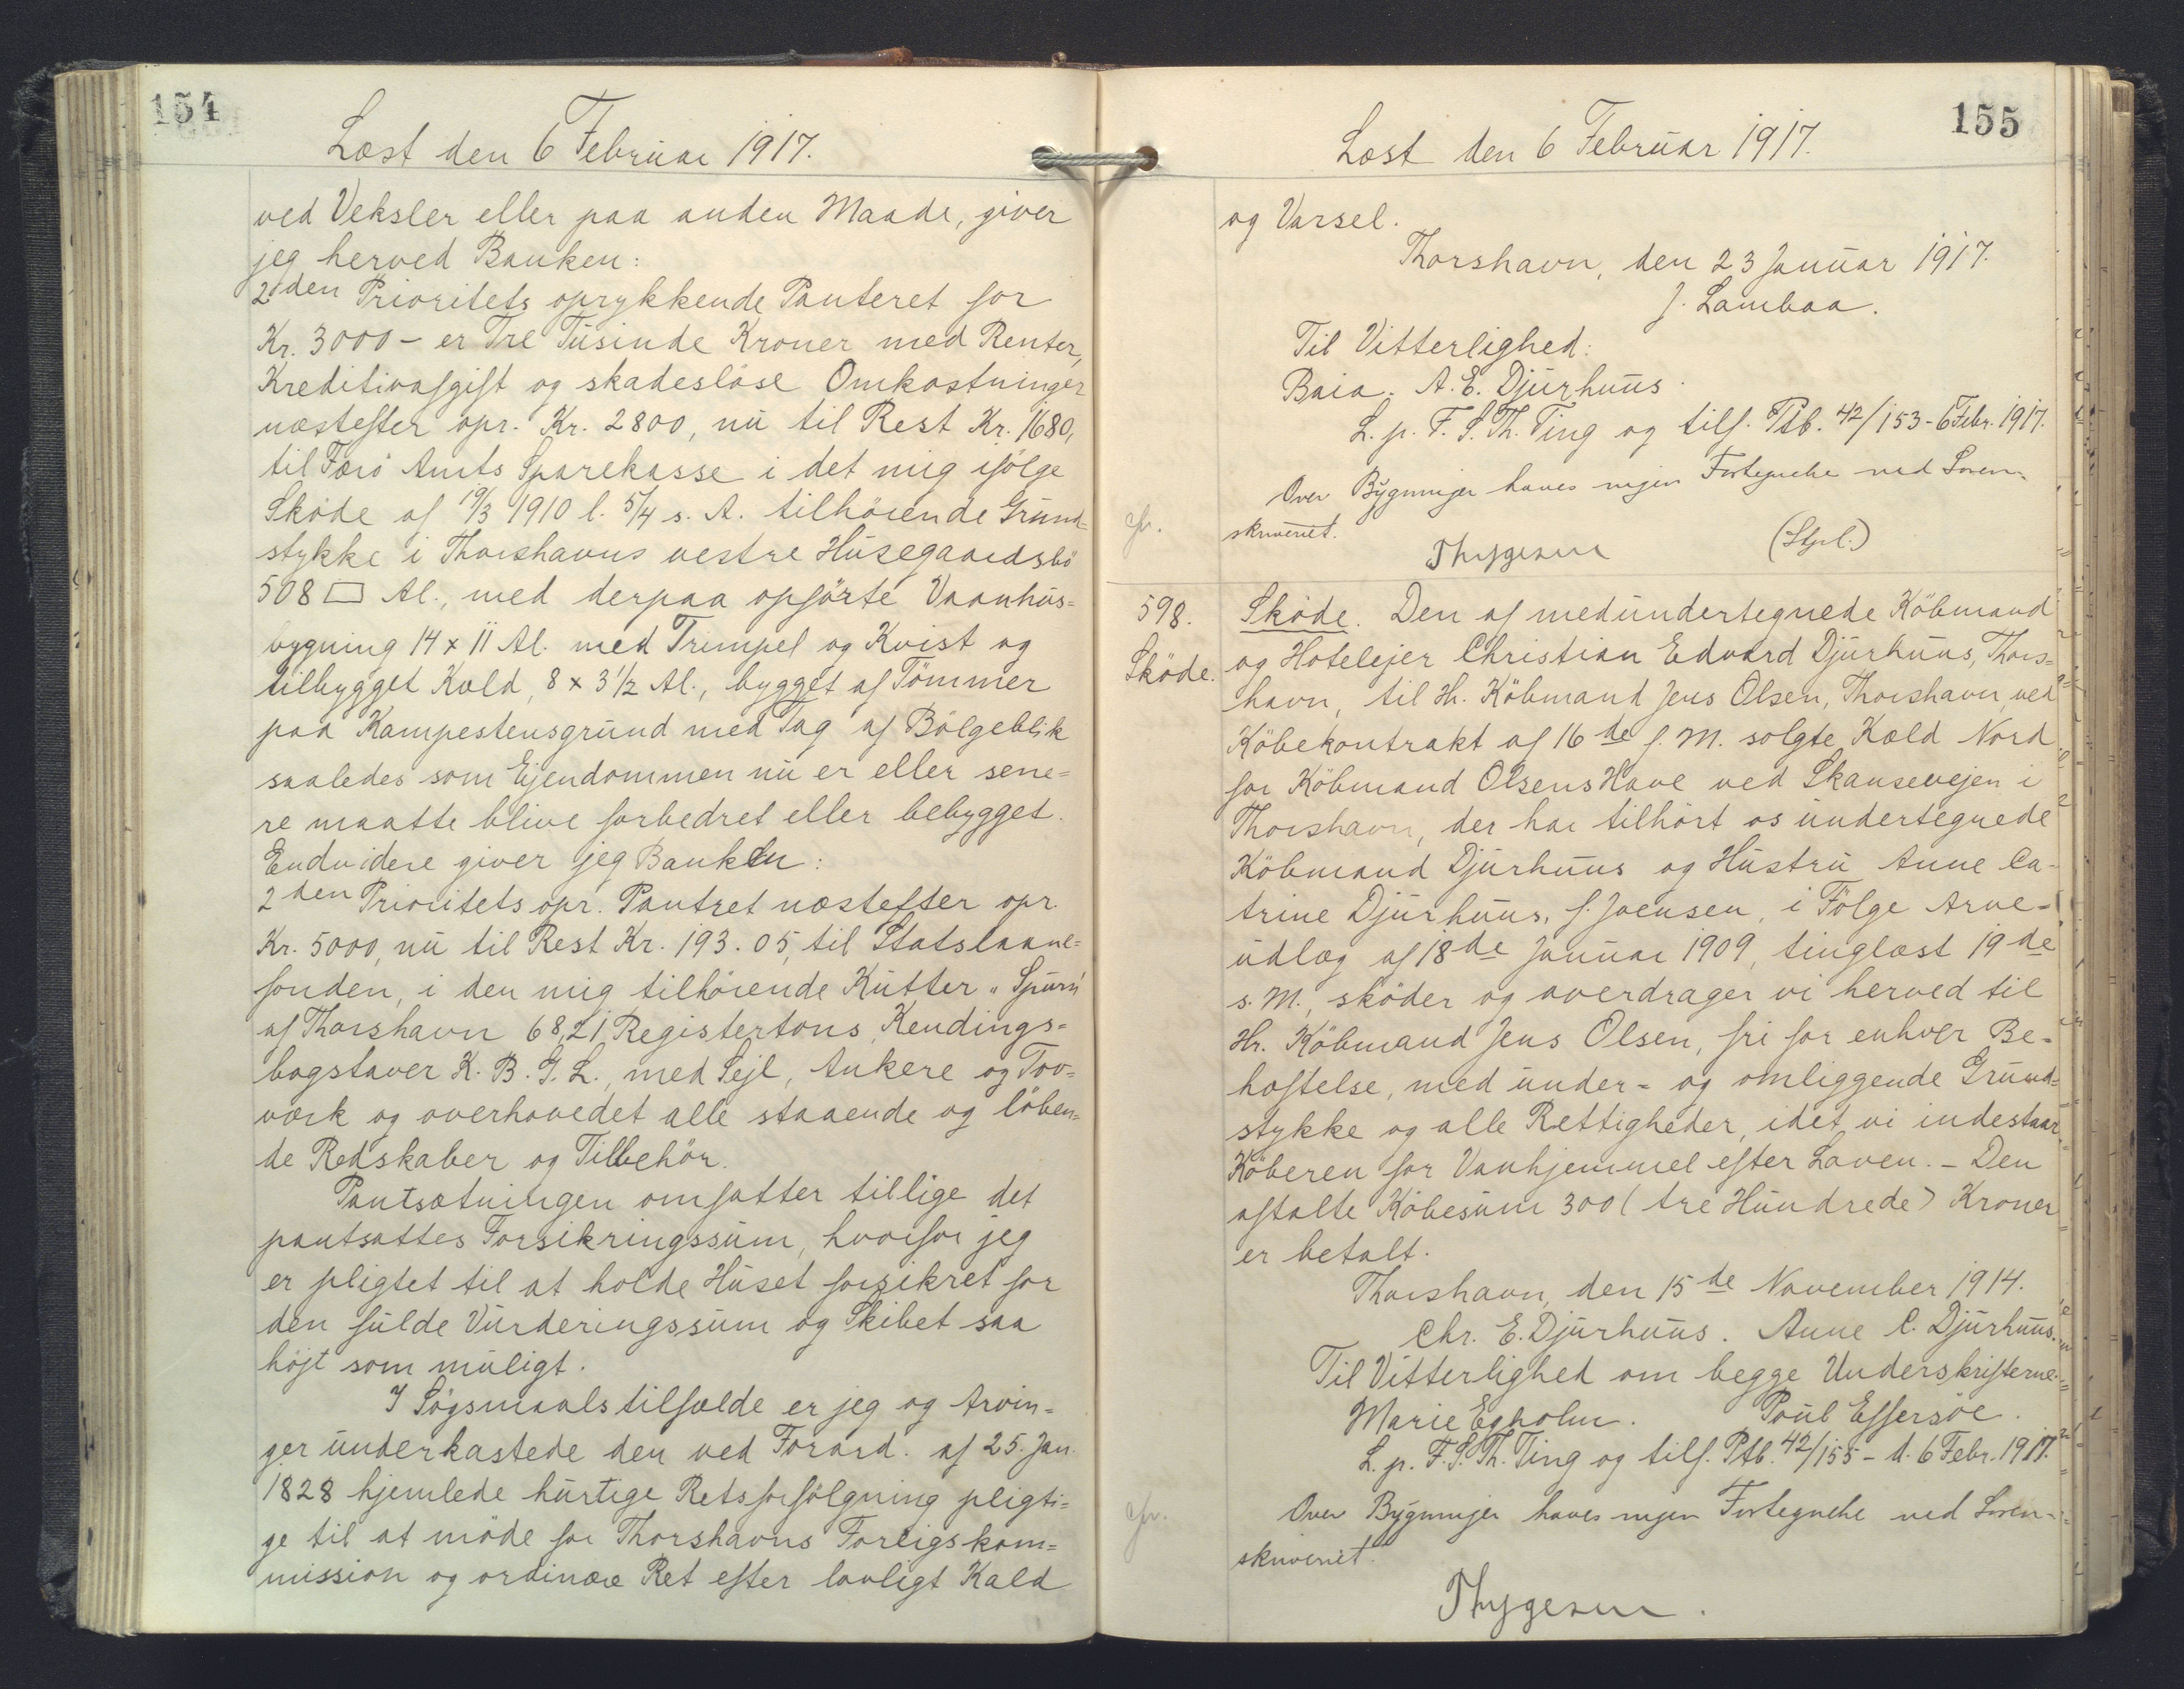 154
Læst den 6 Februar 1917.
ved Veksler eller paa anden Maade, giver
jeg herved Banken:
2den Prioritets oprykkende Panteret for
Kr. 3000 - er Tre Tusinde Kroner med Renter,
Kreditivafgift og skadesløse Omkostninger
næstefter opr. Kr. 2800, nu til Rest Kr. 1680,
til Færö Amts Sparekasse i det mig ifölge
Sköde af 19/3 1910 l. 5/4 s. A. tilhörende Grund=
stykke i Thorshavns vestre Husegaardsbö
508 □ Al., med derpaa opförte Vaanhus=
bygning 14 x 11 Al. med Trimpel og Kvist og
tilbygget Kæld, 8 x 3 1/2 Al., bygget af Tömmer
paa Kampestensgrund med Tag af Bölgeblik
saaledes som Ejendommen nu er eller sene=
re maatte blive forbedret eller bebygget.
Endvidere giver jeg Banken:
2den Prioritets opr. Pantret næstefter opr.
Kr. 5000, nu til Rest Kr. 193.05, til Statslaane=
fonden, i den mig tilhörende Kutter "Spurn"
af Thorshavn 68,21 Registertons, Kendings=
bogstaver K. B. G. L., med Sejl, Ankere og Tov=
værk og overhovedet alle staaende og löben=
de Redskaber og Tilbehör.
Pantsætningen omfatter tillige det
pantsattes Forsikringssum, hvorfor jeg
er pligtet til at holde Huset forsikret for
den fulde Vurderingssum og Skibet saa
höjt som muligt.
I Sögsmaalstilfælde er jeg og Arvin=
ger underkastede den ved Forord. af 25. Jan.
1828 hjemlede hurtige Retsforfölgning pligti=
ge til at möde for Thorshavns Forligskom=
mission og ordinære Ret efter lovligt Kald
155
Læst den 6 Februar 1917.
og Varsel.
Thorshavn, den 23 Januar 1917.
J. Lamhaa.
Til Vitterlighed:
Baia. A. E. Djurhuus.
L. p. F. S. Th. Ting og tilf. Ptb. 42/153 - 6 Febr. 1917.
Over Bygninger haves ingen Fortegnelse ved Soren-
skriveriet.
Thygesen (Stpl.)
598.
Sköde.
Sköde. Den af medundertegnede Köbmand
og Hotelejer Christian Edvard Djurhuus, Thors=
havn, til Hr. Köbmand Jens Olsen, Thorshavn, ved
Köbekontrakt af 16de f. M. solgte Kæld Nord
for Köbmand Olsens Have ved Skansevejen i
Thorshavn, der har tilhört os undertegnede
Köbmand Djurhuus og Hustru Anne Ca-
trine Djurhuus, f. Joensen, i Fölge Arve=
udlæg af 18de Januar 1909, tinglæst 19de
s. M., sköder og overdrager vi herved til
Hr. Köbmand Jens Olsen, fri for enhver Be-
hæftelse, med under- og omliggende Grund=
stykke og alle Rettigheder, idet vi indestaar
Köberen for Vanhjemmel efter Loven. - Den
aftalte Köbesum 300 (tre Hundrede) Kroner
er betalt.
Thorshavn, den 15de November 1914.
Chr. E. Djurhuus. Anne C. Djurhuus.
Til Vitterlighed om begge Underskrifterne:
Marie Egholm. Poul Effersöe.
L. p. F. S. Th. Ting og tilf. Ptb. 42/155 - d. 6 Febr. 1917.
Over Bygninger haves ingen Fortegnelse ved Soren-
skriveriet.
Thygesen.